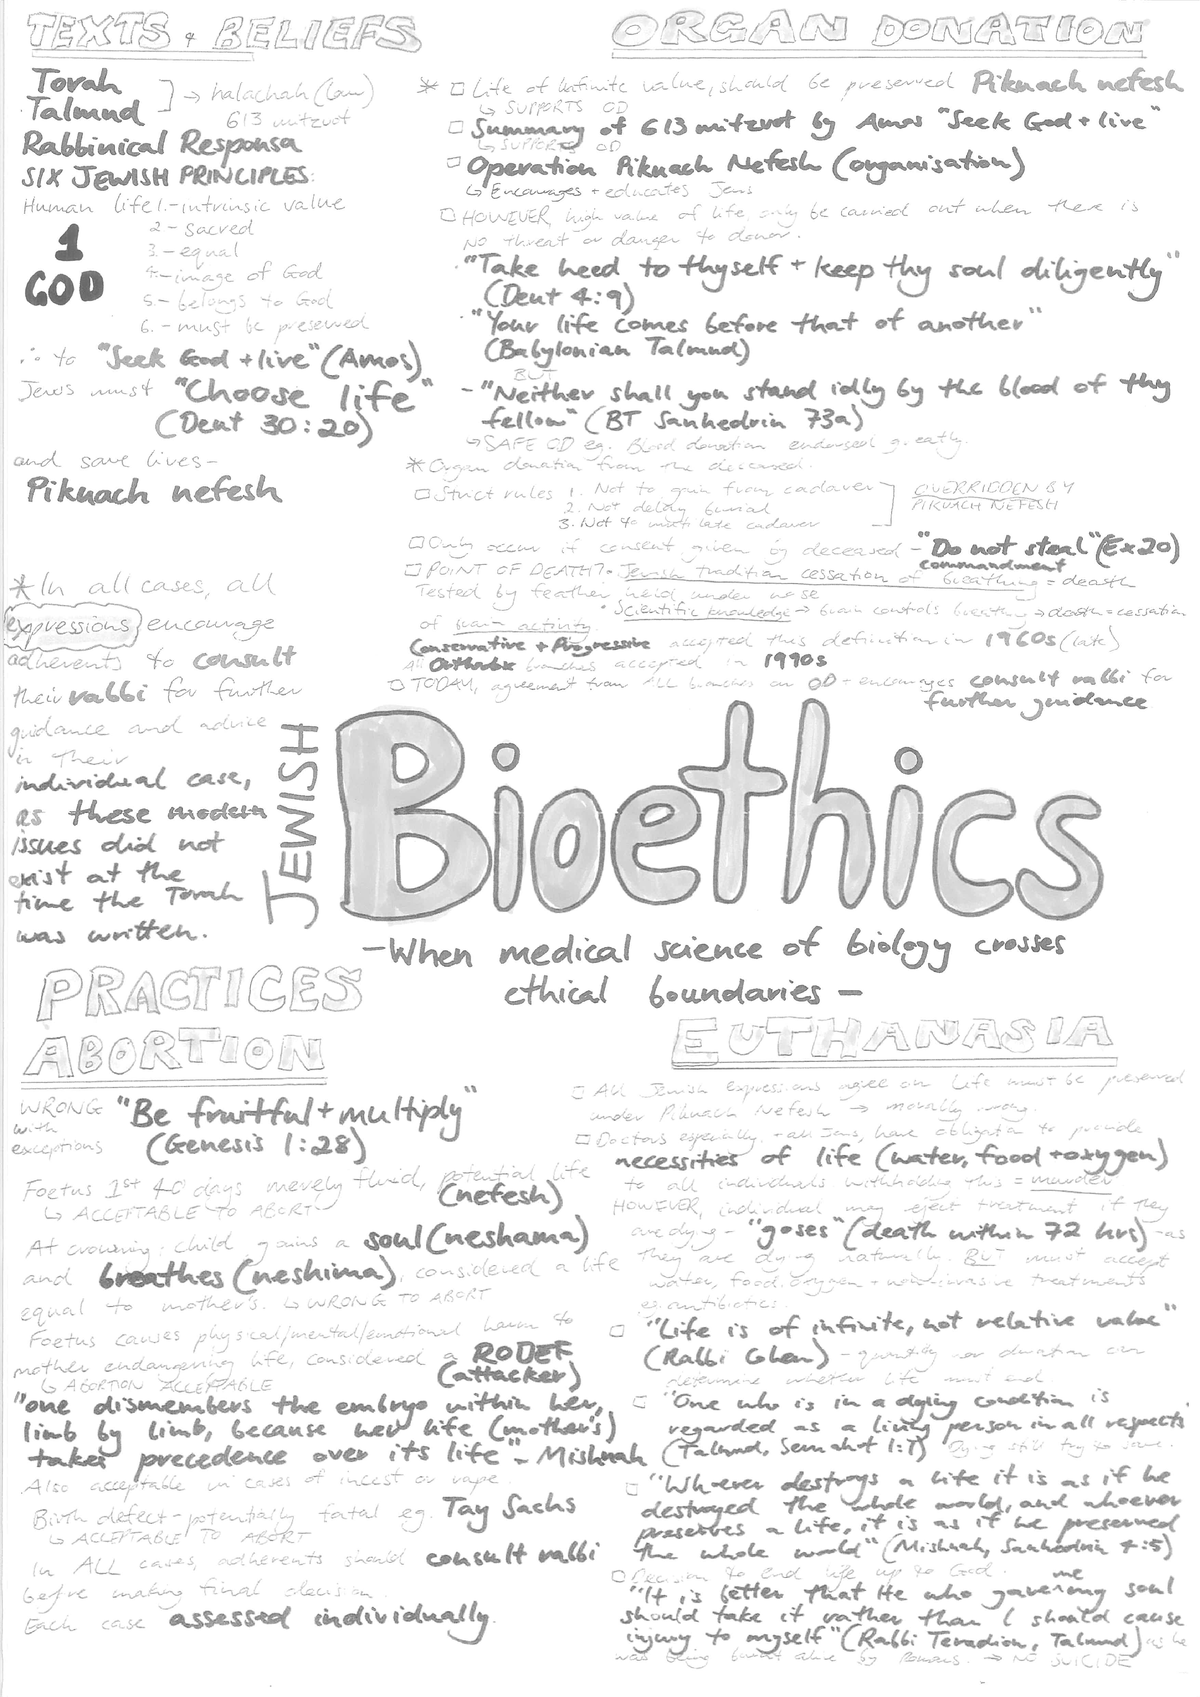 TEXTS + BELIEFS
Torah
Talmud
→ halachah (law)
613 mitzvot
Rabbinical Responsa
SIX JEWISH PRINCIPLES:
Human life 1.-intrinsic value
2-sacred
3.-equal
4-image of God
5-belongs to God
6.-must be preserved
1
GOD
∴ to "Seek God + live" (Amos)
Jews must "Choose life"
(Deut 30:20)
and save lives-
Pikuach nefesh
*In all cases, all
expressions encourage
adherents to consult
their rabbi for further
guidance and advice
in their
individual case,
as these modern
issues did not
exist at the
time the Torah
was written.
ORGAN DONATION
* □ Life of infinite value, should be preserved Pikuach nefesh
↳ SUPPORTS OD
□ Summary of 613 mitzvot by Amos "Seek God + live"
↳ SUPPORTS OD
□ Operation Pikuach Nefesh (organisation)
↳ Encourages + educates Jews
□ HOWEVER, high value of life, only be carried out when there is
no threat or danger to donor.
·"Take heed to thyself + keep thy soul diligently"
(Deut 4:9)
·"Your life comes before that of another"
(Babylonian Talmud)
BUT
-"Neither shall you stand idly by the blood of thy
fellow" (BT Sanhedrin 73a)
↳SAFE OD eg. Blood donation endorsed greatly.
*Organ donation from the deceased.
□Strict rules 1. Not to gain from cadaver
2. Not delay burial
3. Not to mutilate cadaver
OVERRIDDEN BY
PIKUACH NEFESH
□Only occur if consent given by deceased - "Do not steal" (Ex20)
commandment
□POINT OF DEATH?· Jewish tradition cessation of breathing = death
Tested by feather held under nose
· Scientific knowledge → brain controls breathing → death = cessation
of brain activity.
Conservative + Progressive accepted this definition in 1960s (late)
All Orthodox branches accepted in 1990s
□ TODAY, agreement from ALL branches on OD + encourages consult rabbi for
further guidance
JEWISH
Bioethics
-When medical science of biology crosses
ethical boundaries -
PRACTICES
ABORTION
WRONG
with
exceptions
"Be fruitful + multiply"
(Genesis 1:28)
Foetus 1st 40 days merely fluid, potential life
(nefesh)
↳ ACCEPTABLE TO ABORT
At crowning: child gains a soul (neshama)
and breathes (neshima), considered a life
equal to mother's. ↳ WRONG TO ABORT
Foetus causes physical/mental/emotional harm to
mother endangering life, considered a RODEF
(attacker)
↳ ABORTION ACCEPTABLE
"one dismembers the embryo within her,
limb by limb, because her life (mother's)
takes precedence over its life" - Mishnah
Also acceptable in cases of incest or rape.
Birth defect - potentially fatal eg. Tay Sachs
↳ ACCEPTABLE TO ABORT
In ALL cases, adherents should consult rabbi
before making final decision.
Each case assessed individually.
EUTHANASIA
□ All Jewish expressions agree on Life must be preserved
under Pikuach Nefesh → morally wrong.
□ Doctors especially, + all Jews, have obligation to provide
necessities of life (water, food + oxygen)
to all individuals withholding this = murder
HOWEVER, individual may reject treatment if they
are dying - "goses" (death within 72 hrs) - as
they are dying naturally. BUT must accept
water, food, oxygen + non-invasive treatments
eg. antibiotics.
□ "Life is of infinite, not relative value"
(Rabbi Cohen) - quantity nor duration can
determine whether life must end.
□ "One who is in a dying condition is
regarded as a living person in all respects"
(Talmud, Semahot 1:1) Dying still try to save.
□ "Whoever destroys a life it is as if he
destroyed the whole world, and whoever
preserves a life, it is as if he preserved
the whole world" (Mishnah, Sanhedrin 4:5)
□ Decision to end life up to God.
"It is better that He who gave me my soul
should take it rather than I should cause
injury to myself" (Rabbi Teradion, Talmud) as he
was being burnt alive by Romans. → NO SUICIDE